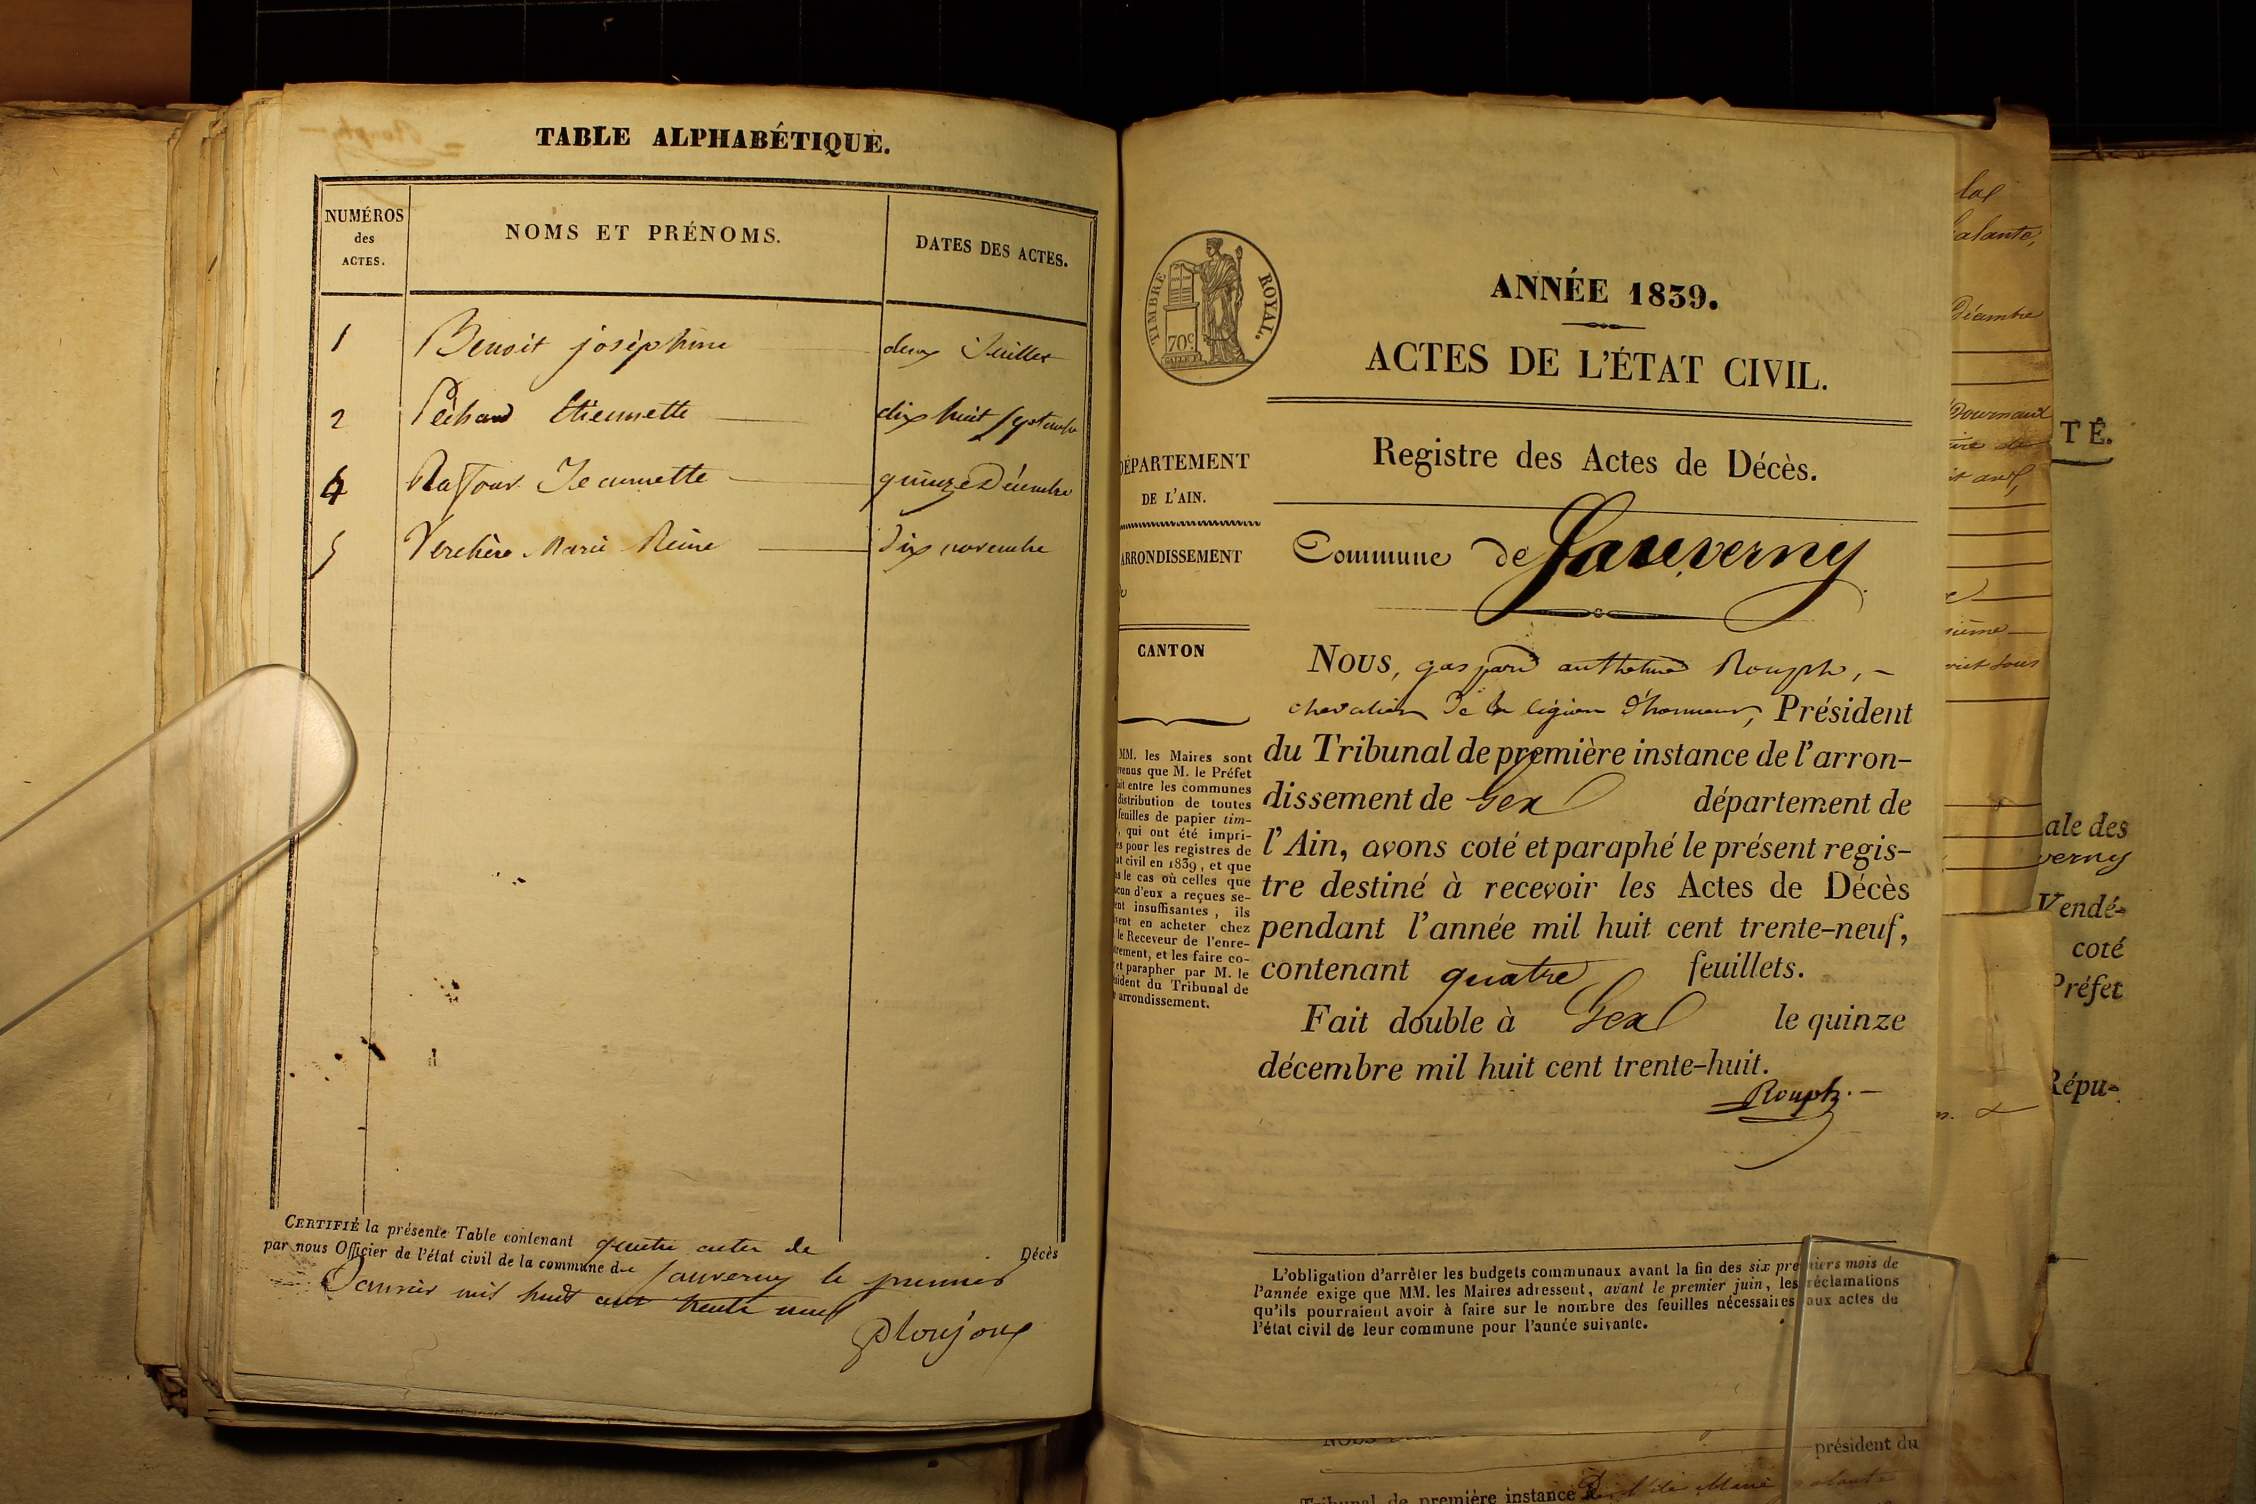 TABLE ALPHABÉTIQUE.
NUMÉROS
des
ACTES.
NOMS ET PRÉNOMS.
DATES DES ACTES.
1 Benoit joséphine deux Juillet
2 Péchard Etiennette dix huit septembre
4 Jeannette quinze Décembre
5 Verchère Marie Reine dix novembre
CERTIFIÉ la présente Table contenant quatre actes de Décès
par nous Officier de l'état civil de la commune de Sauverny le premier
Janvier mil huit cent trente neuf
Ploujoux
TIMBRE ROYAL.
70c
ANNÉE 1839.
ACTES DE L'ÉTAT CIVIL.
Registre des Actes de Décès.
DÉPARTEMENT
DE L'AIN.
ARRONDISSEMENT
CANTON
Commune de Sauverny
NOUS, gaspard anthelme Rouph, –
chevalier de la légion d'honneur, Président
du Tribunal de première instance de l'arron-
dissement de Gex département de
l'Ain, avons coté et paraphé le présent regis-
tre destiné à recevoir les Actes de Décès
pendant l'année mil huit cent trente-neuf,
contenant quatre feuillets.
Fait double à Gex le quinze
décembre mil huit cent trente-huit.
Rouph. –
MM. les Maires sont
venus que M. le Préfet
ait entre les communes
distribution de toutes
feuilles de papier tim-
, qui ont été impri-
es pour les registres de
at civil en 1839, et que
s le cas où celles que
acun d'eux a reçues se-
ent insuffisantes, ils
vent en acheter chez
le Receveur de l'enre-
trement, et les faire co-
et parapher par M. le
sident du Tribunal de
arrondissement.
L'obligation d'arrêter les budgets communaux avant la fin des six premiers mois de
l'année exige que MM. les Maires adressent, avant le premier juin, les réclamations
qu'ils pourraient avoir à faire sur le nombre des feuilles nécessaires aux actes de
l'état civil de leur commune pour l'année suivante.
TÉ.
ale des
verny
Vendé-
coté
Préfet
Répu-
président du
Tribunal de première instance